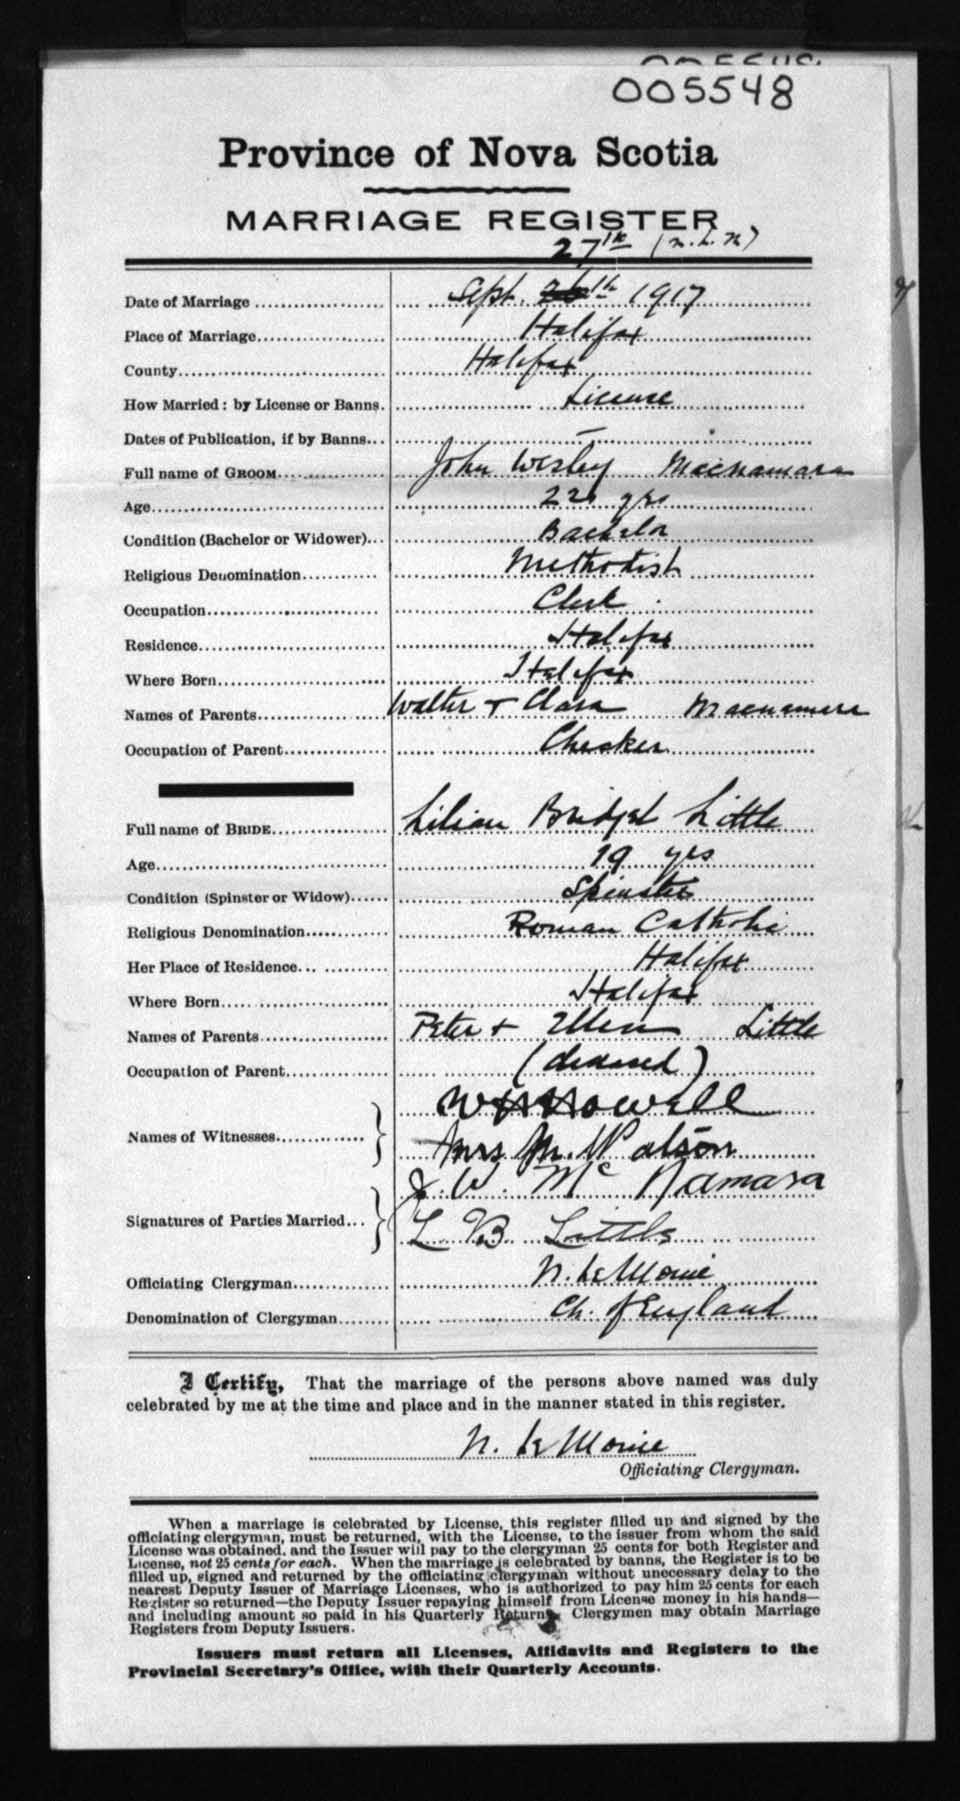 005548
Province of Nova Scotia
MARRIAGE REGISTER
27th (N. L. M)
Date of Marriage Sept. 26th 1917
Place of Marriage Halifax
County Halifax
How Married: by License or Banns. License
Dates of Publication, if by Banns —
Full name of GROOM John Wesley Macnamara
Age 22 yrs
Condition (Bachelor or Widower) Bachelor
Religious Denomination Methodist
Occupation Clerk
Residence Halifax
Where Born Halifax
Names of Parents Walter + Clara Macnamara
Occupation of Parent Checker
Full name of BRIDE Lilian Bridget Little
Age 19 yrs
Condition (Spinster or Widow) Spinster
Religious Denomination Roman Catholic
Her Place of Residence Halifax
Where Born Halifax
Names of Parents Peter + Ellen Little
Occupation of Parent (deceased)
Names of Witnesses
Mrs M. Watson
Signatures of Parties Married J. W. McNamara
L B Little
Officiating Clergyman N. LeMoine
Denomination of Clergyman Ch. of England
I Certify, That the marriage of the persons above named was duly
celebrated by me at the time and place and in the manner stated in this register.
N. LeMoine
Officiating Clergyman.
When a marriage is celebrated by License, this register filled up and signed by the
officiating clergyman, must be returned, with the License, to the issuer from whom the said
License was obtained, and the Issuer will pay to the clergyman 25 cents for both Register and
License, not 25 cents for each. When the marriage is celebrated by banns, the Register is to be
filled up, signed and returned by the officiating clergyman without unnecessary delay to the
nearest Deputy Issuer of Marriage Licenses, who is authorized to pay him 25 cents for each
Register so returned—the Deputy Issuer repaying himself from License money in his hands—
and including amount so paid in his Quarterly Return. Clergymen may obtain Marriage
Registers from Deputy Issuers.
Issuers must return all Licenses, Affidavits and Registers to the
Provincial Secretary's Office, with their Quarterly Accounts.